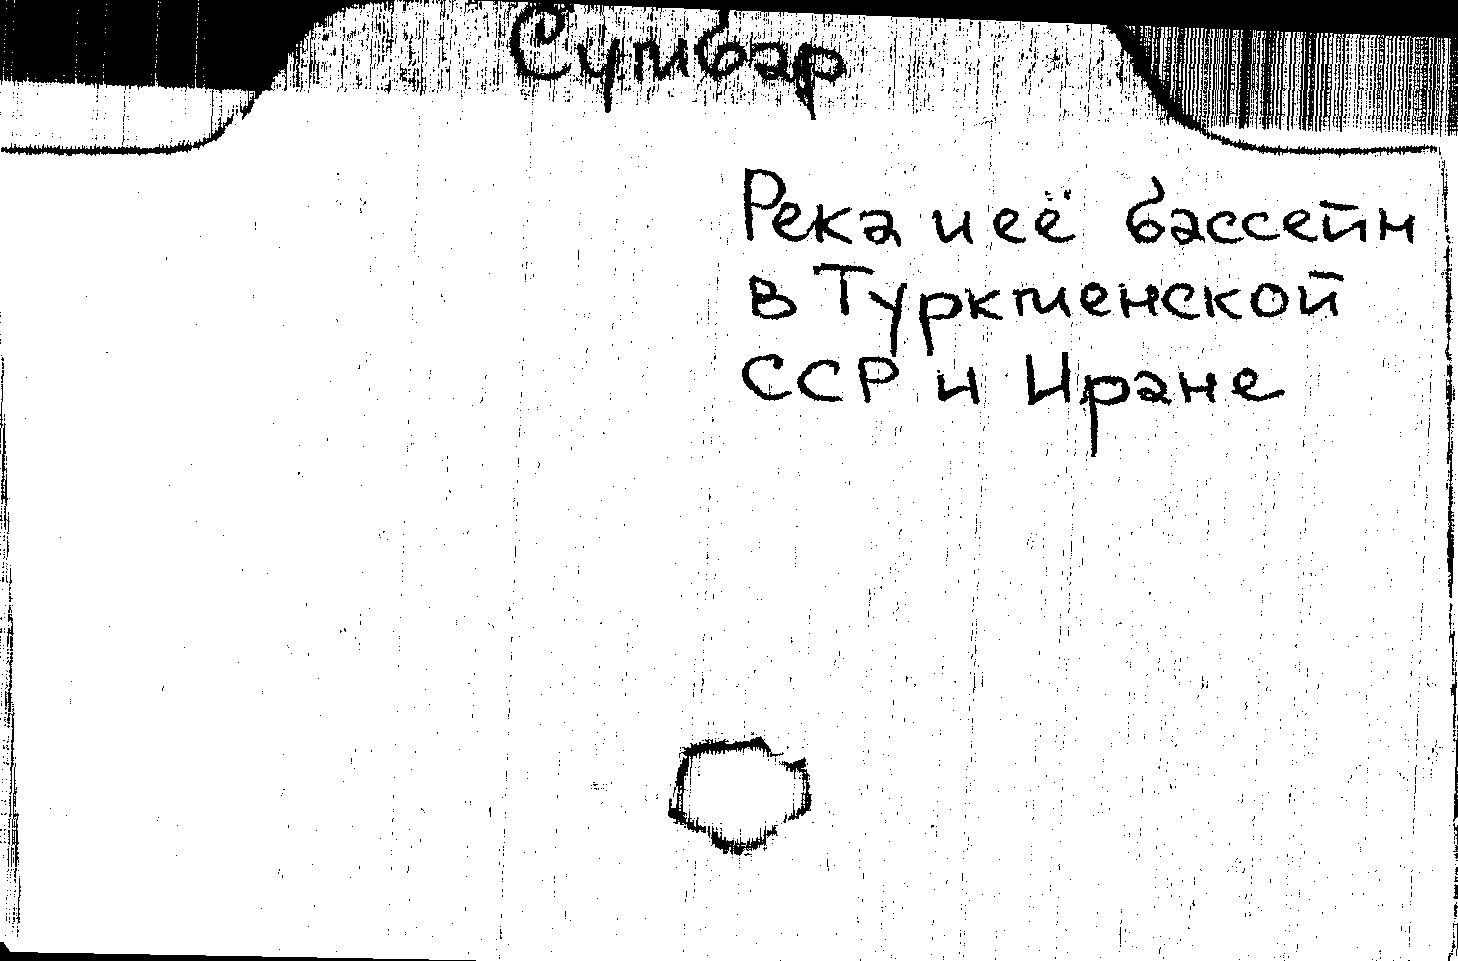 Сумбар
Река и её бассейн
в Туркменской
ССР и Иране